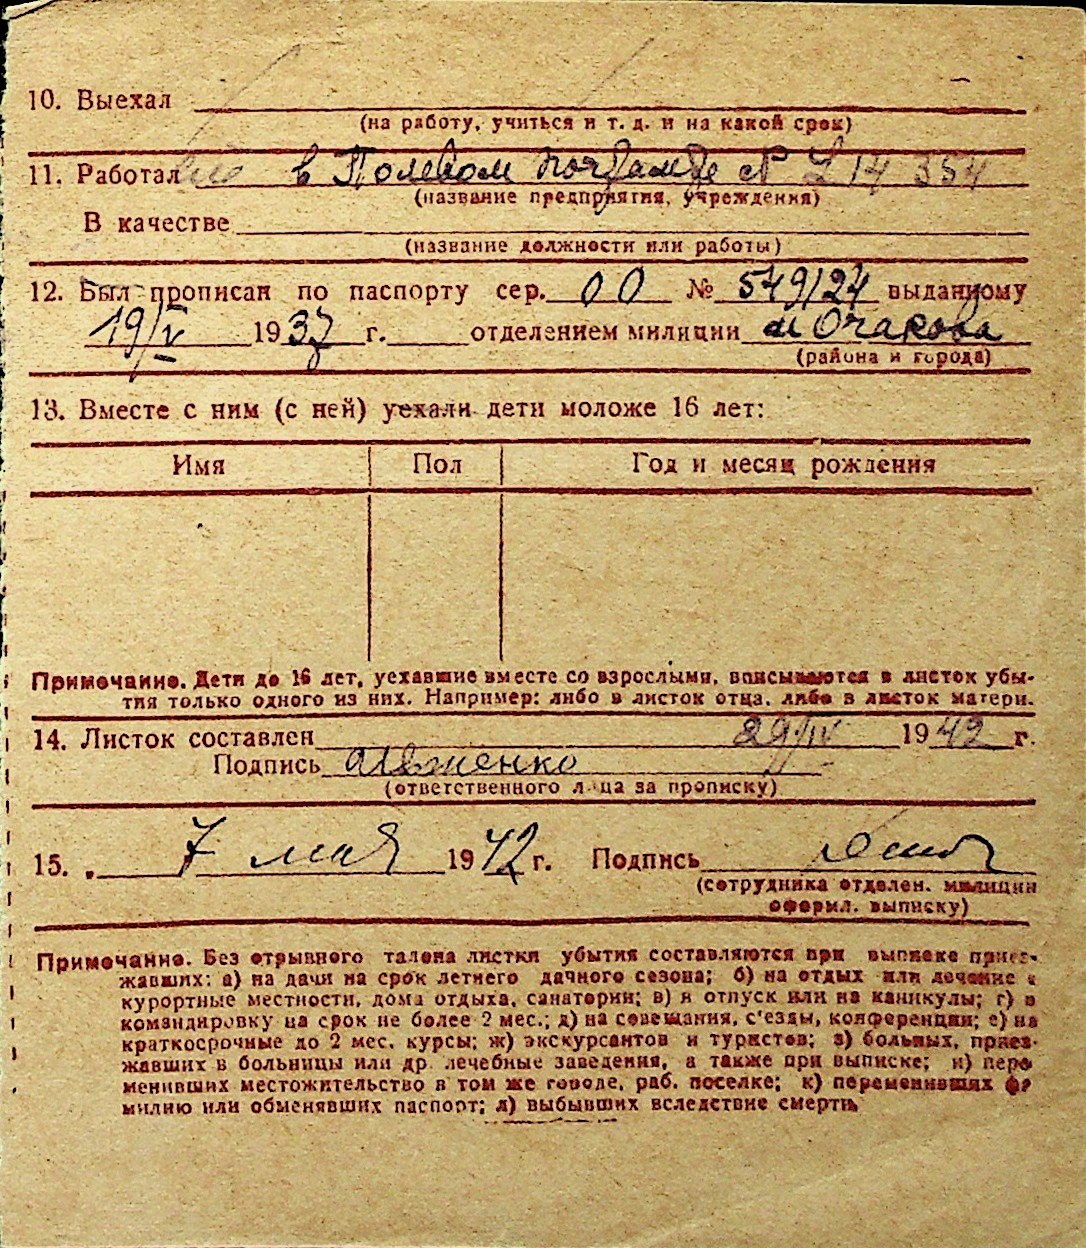 10. Выехал
(на работу, учиться и т. д. и на какой срок)
11. Работал в Полевом почтамте № 14 354
(название предприятия, учреждения)
В качестве
(название должности или работы)
12. Был прописан по паспорту сер. 00 № 549/24 выданному
19/V 1937 г. отделением милиции м Очакова
(района и города)
13. Вместе с ним (с ней) уехали дети моложе 16 лет:
Имя Пол Год и месяц рождения
Примечание. Дети до 16 лет, уехавшие вместе со взрослыми, вписываются в листок убы-
тия только одного из них. Например: либо в листок отца, либо в листок матери.
14. Листок составлен 29/IV 1942 г.
Подпись
(ответственного лица за прописку)
15. 7 мая 1942 г. Подпись
(сотрудника отделен. милиции
оформл. выписку)
Примечание. Без отрывного талона листки убытия составляются при выписке приез-
жавших: а) на дачи на срок летнего дачного сезона; б) на отдых или лечение в
курортные местности, дома отдыха, санатории; в) в отпуск или на каникулы; г) в
командировку на срок не более 2 мес.; д) на совещания, с'езды, конференции; е) на
краткосрочные до 2 мес. курсы; ж) экскурсантов и туристов; з) больных, приез-
жавших в больницы или др. лечебные заведения, а также при выписке; и) пере
менивших местожительство в том же городе, раб. поселке; к) переменивших фа
милию или обменявших паспорт; л) выбывших вследствие смерти.